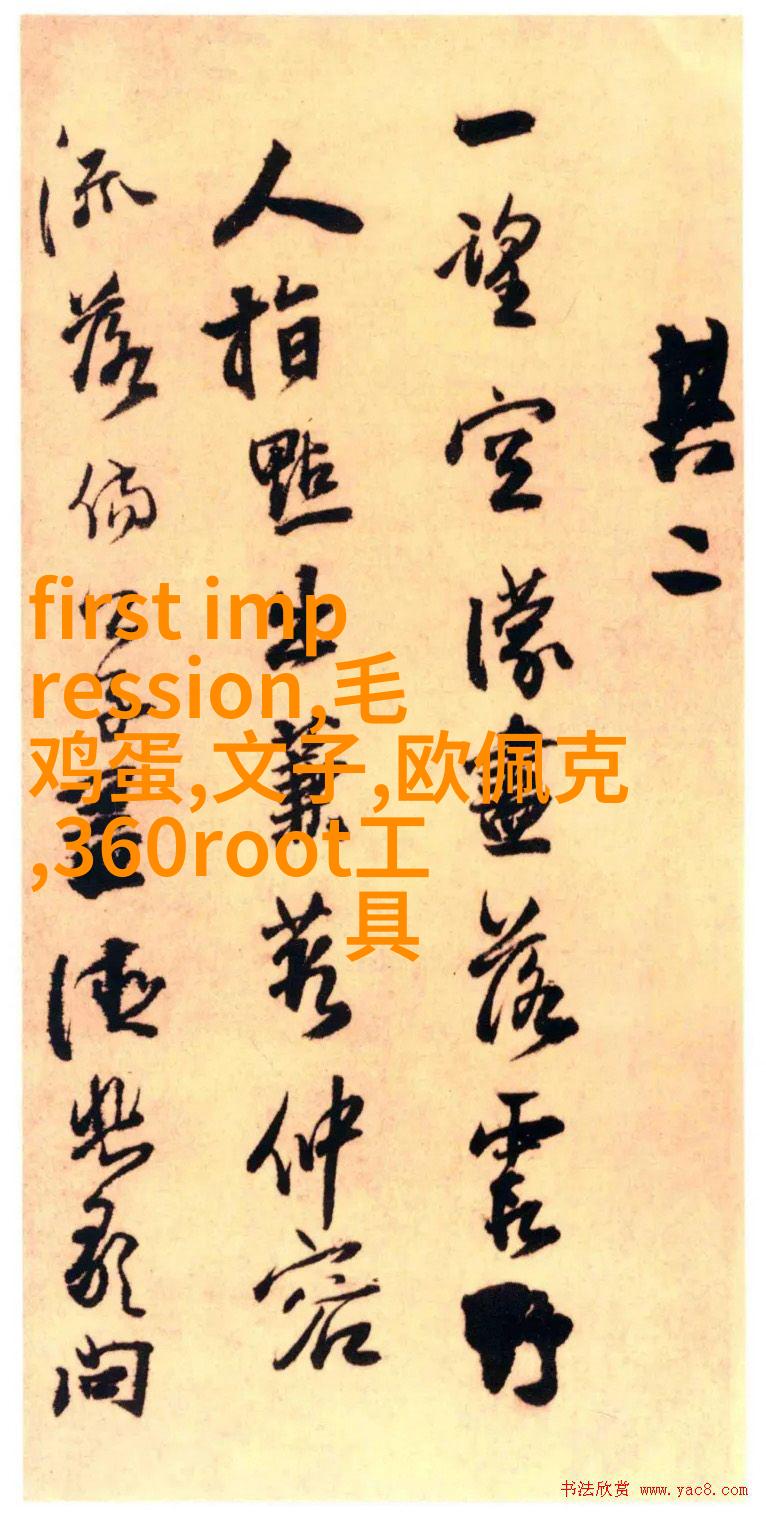 其二
一望空濛盡落霞野
人指點出蒹葭仲容
流落倘問
first imp
ression,毛
鸡蛋,文子,欧佩克
,360root工
具
书法欣赏 www.yac8.com